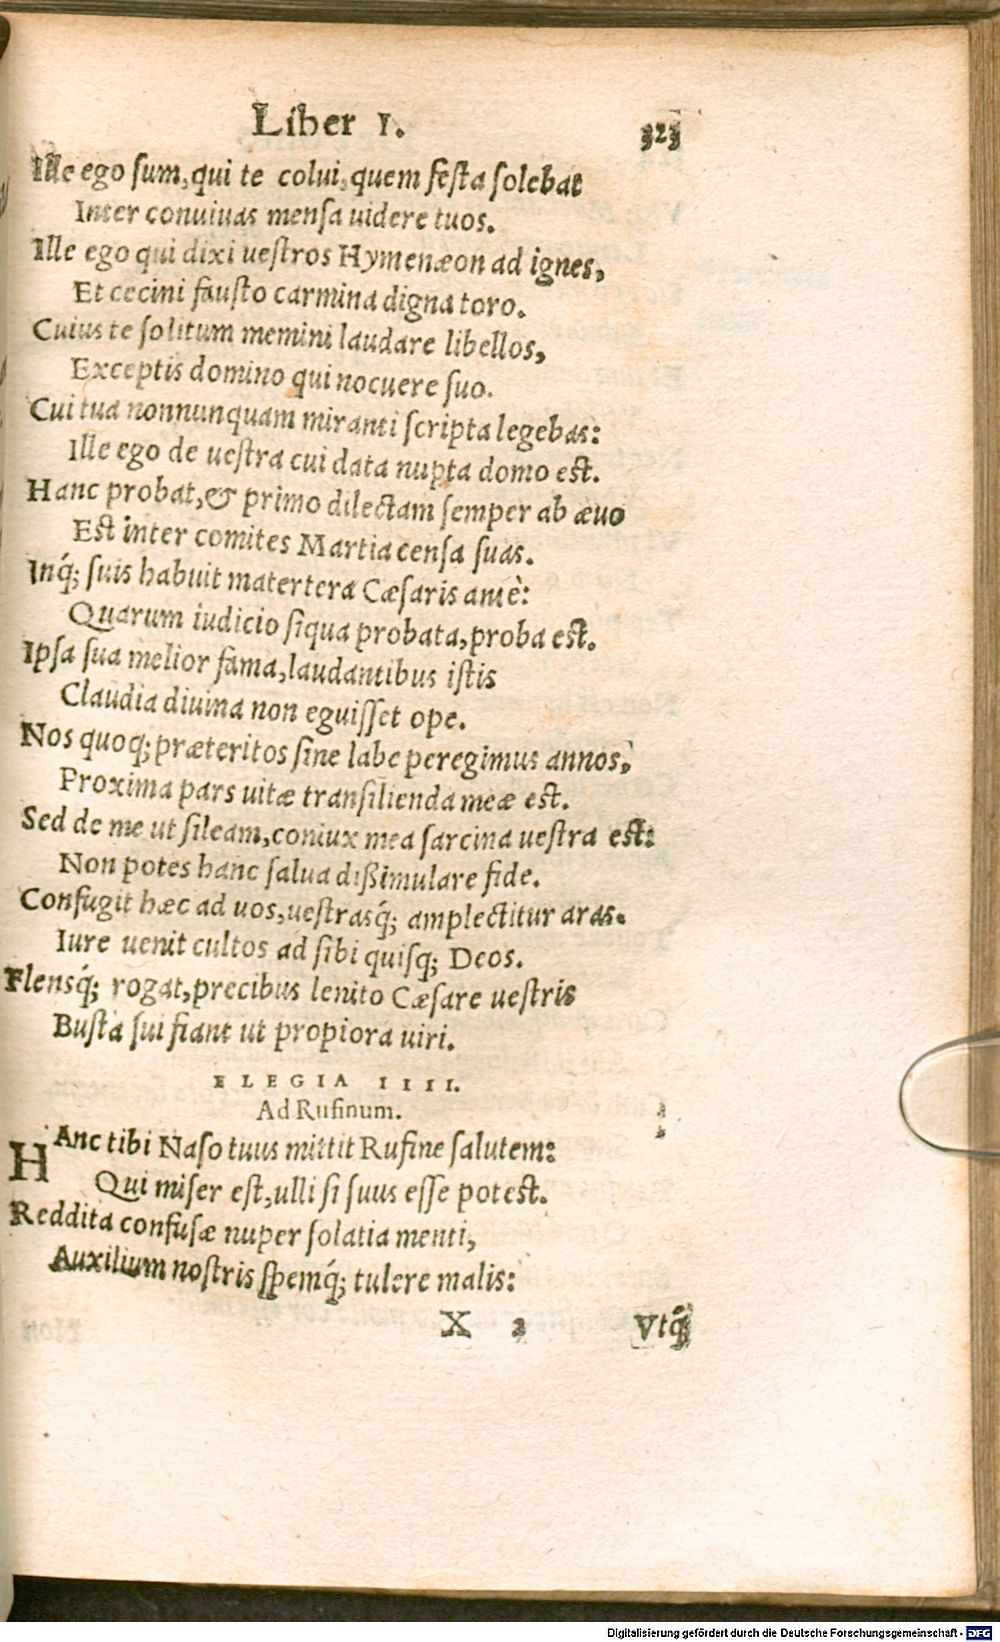 Liber 1. 323
Ille ego sum, qui te colui, quem festa solebat
Inter conuiuas mensa uidere tuos.
Ille ego qui dixi uestros Hymenæon ad ignes,
Et cecini fausto carmina digna toro.
Cuius te solitum memini laudare libellos,
Exceptis domino qui nocuere suo.
Cui tua nonnunquam miranti scripta legebas:
Ille ego de uestra cui data nupta domo est.
Hanc probat, & primo dilectam semper ab æuo
Est inter comites Martia censa suas.
Inq́; suis habuit matertera Cæsaris antè:
Quarum iudicio siqua probata, proba est.
Ipsa sua melior fama, laudantibus istis
Claudia diuina non eguisset ope.
Nos quoq; præteritos sine labe peregimus annos,
Proxima pars uitæ transilienda meæ est.
Sed de me ut sileam, coniux mea sarcina uestra est:
Non potes hanc salua dißimulare fide.
Confugit hæc ad uos, uestrasq́; amplectitur aras.
Iure uenit cultos ad sibi quisq; Deos.
Flensq́; rogat, precibus lenito Cæsare uestris
Busta sui fiant ut propiora uiri.
ELEGIA IIII.
Ad Rufinum.
HAnc tibi Naso tuus mittit Rufine salutem:
Qui miser est, ulli si suus esse potest.
Reddita confusæ nuper solatia menti,
Auxilium nostris spemq́; tulere malis:
X 2 Vtq́;
Digitalisierung gefördert durch die Deutsche Forschungsgemeinschaft - DFG